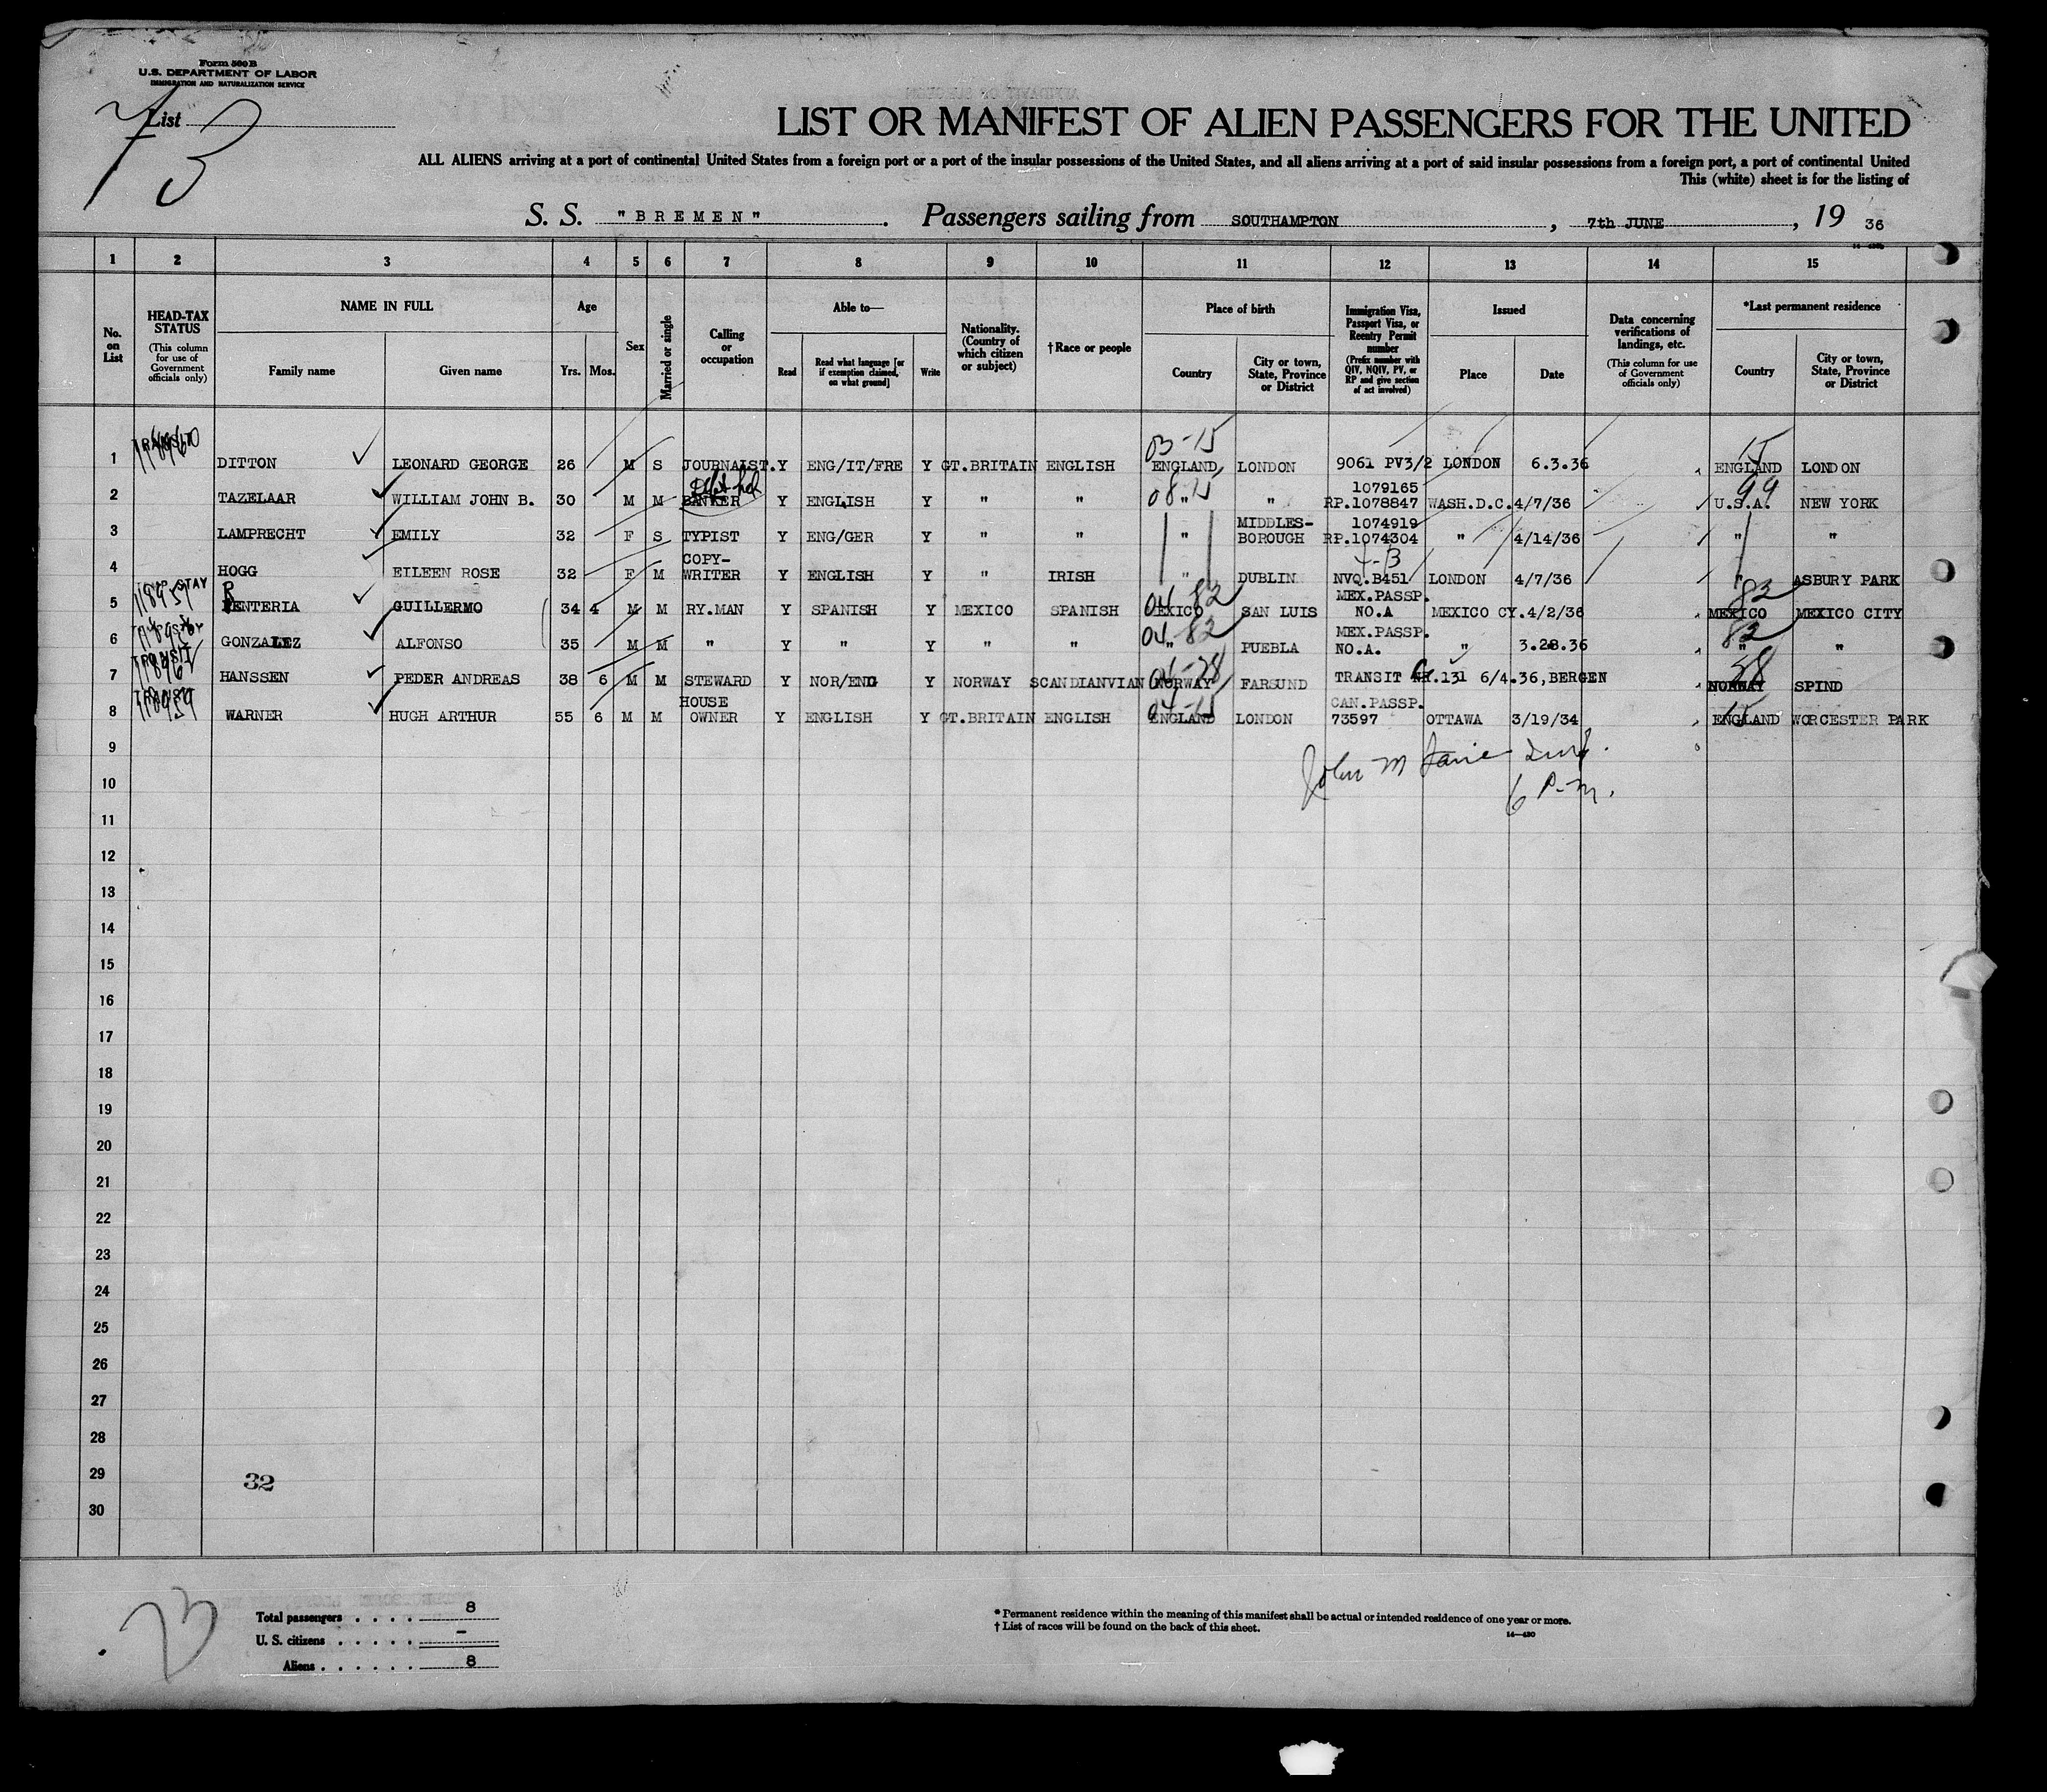 Form 500 B
U.S. DEPARTMENT OF LABOR
IMMIGRATION AND NATURALIZATION SERVICE
List
73
LIST OR MANIFEST OF ALIEN PASSENGERS FOR THE UNITED
ALL ALIENS arriving at a port of continental United States from a foreign port or a port of the insular possessions of the United States, and all aliens arriving at a port of said insular possessions from a foreign port, a port of continental United
This (white) sheet is for the listing of
S. S. "BREMEN". Passengers sailing from SOUTHAMPTON, 7th JUNE, 19 36
1 2 3 4 5 6 7 8 9 10 11 12 13 14 15
No. on List
HEAD-TAX STATUS (This column for use of Government officials only)
NAME IN FULL
Family name Given name
Age
Yrs. Mos.
Sex
Married or single
Calling or occupation
Able to—
Read Read what language [or if exemption claimed, on what ground] Write
Nationality. (Country of which citizen or subject)
†Race or people
Place of birth
Country City or town, State, Province or District
Immigration Visa, Passport Visa, or Reentry Permit number (Prefix number with QIV, NQIV, PV, or RP and give section of act involved)
Issued
Place Date
Data concerning verifications of landings, etc. (This column for use of Government officials only)
*Last permanent residence
Country City or town, State, Province or District
03-15 15
1 DITTON LEONARD GEORGE 26 M S JOURNALST. Y ENG/IT/FRE Y GT.BRITAIN ENGLISH ENGLAND LONDON 9061 PV3/2 LONDON 6.3.36 ENGLAND LONDON
08-15 1079165 99
2 TAZELAAR WILLIAM JOHN B. 30 M M BANKER Y ENGLISH Y " " " " RP.1078847 WASH.D.C. 4/7/36 U.S.A. NEW YORK
MIDDLES- 1074919
3 LAMPRECHT EMILY 32 F S TYPIST Y ENG/GER Y " " " BOROUGH RP.1074304 " 4/14/36 " "
COPY- 4-B
4 HOGG EILEEN ROSE 32 F M WRITER Y ENGLISH Y " IRISH " DUBLIN NVQ.B451 LONDON 4/7/36 " ASBURY PARK
04-82 MEX.PASSP. 82
5 RENTERIA GUILLERMO 34 4 M M RY.MAN Y SPANISH Y MEXICO SPANISH MEXICO SAN LUIS NO.A MEXICO CY. 4/2/36 MEXICO MEXICO CITY
04-82 MEX.PASSP. 82
6 GONZALEZ ALFONSO 35 M M " Y " Y " " " PUEBLA NO.A. " 3.28.36 " "
TRANSIT
7 HANSSEN PEDER ANDREAS 38 6 M M STEWARD Y NOR/ENG Y NORWAY SCANDIANVIAN NORWAY FARSUND TRANSIT NR.131 6/4.36,BERGEN NORWAY SPIND
HOUSE 04-15 CAN.PASSP. 15
8 WARNER HUGH ARTHUR 55 6 M M OWNER Y ENGLISH Y GT.BRITAIN ENGLISH ENGLAND LONDON 73597 OTTAWA 3/19/34 ENGLAND WORCESTER PARK
9
10
6 P.M.
11
12
13
14
15
16
17
18
19
20
21
22
23
24
25
26
27
28
29 32
30
Total passengers .... 8
U. S. citizens ..... -
Aliens ...... 8
73
* Permanent residence within the meaning of this manifest shall be actual or intended residence of one year or more.
† List of races will be found on the back of this sheet.
14—430